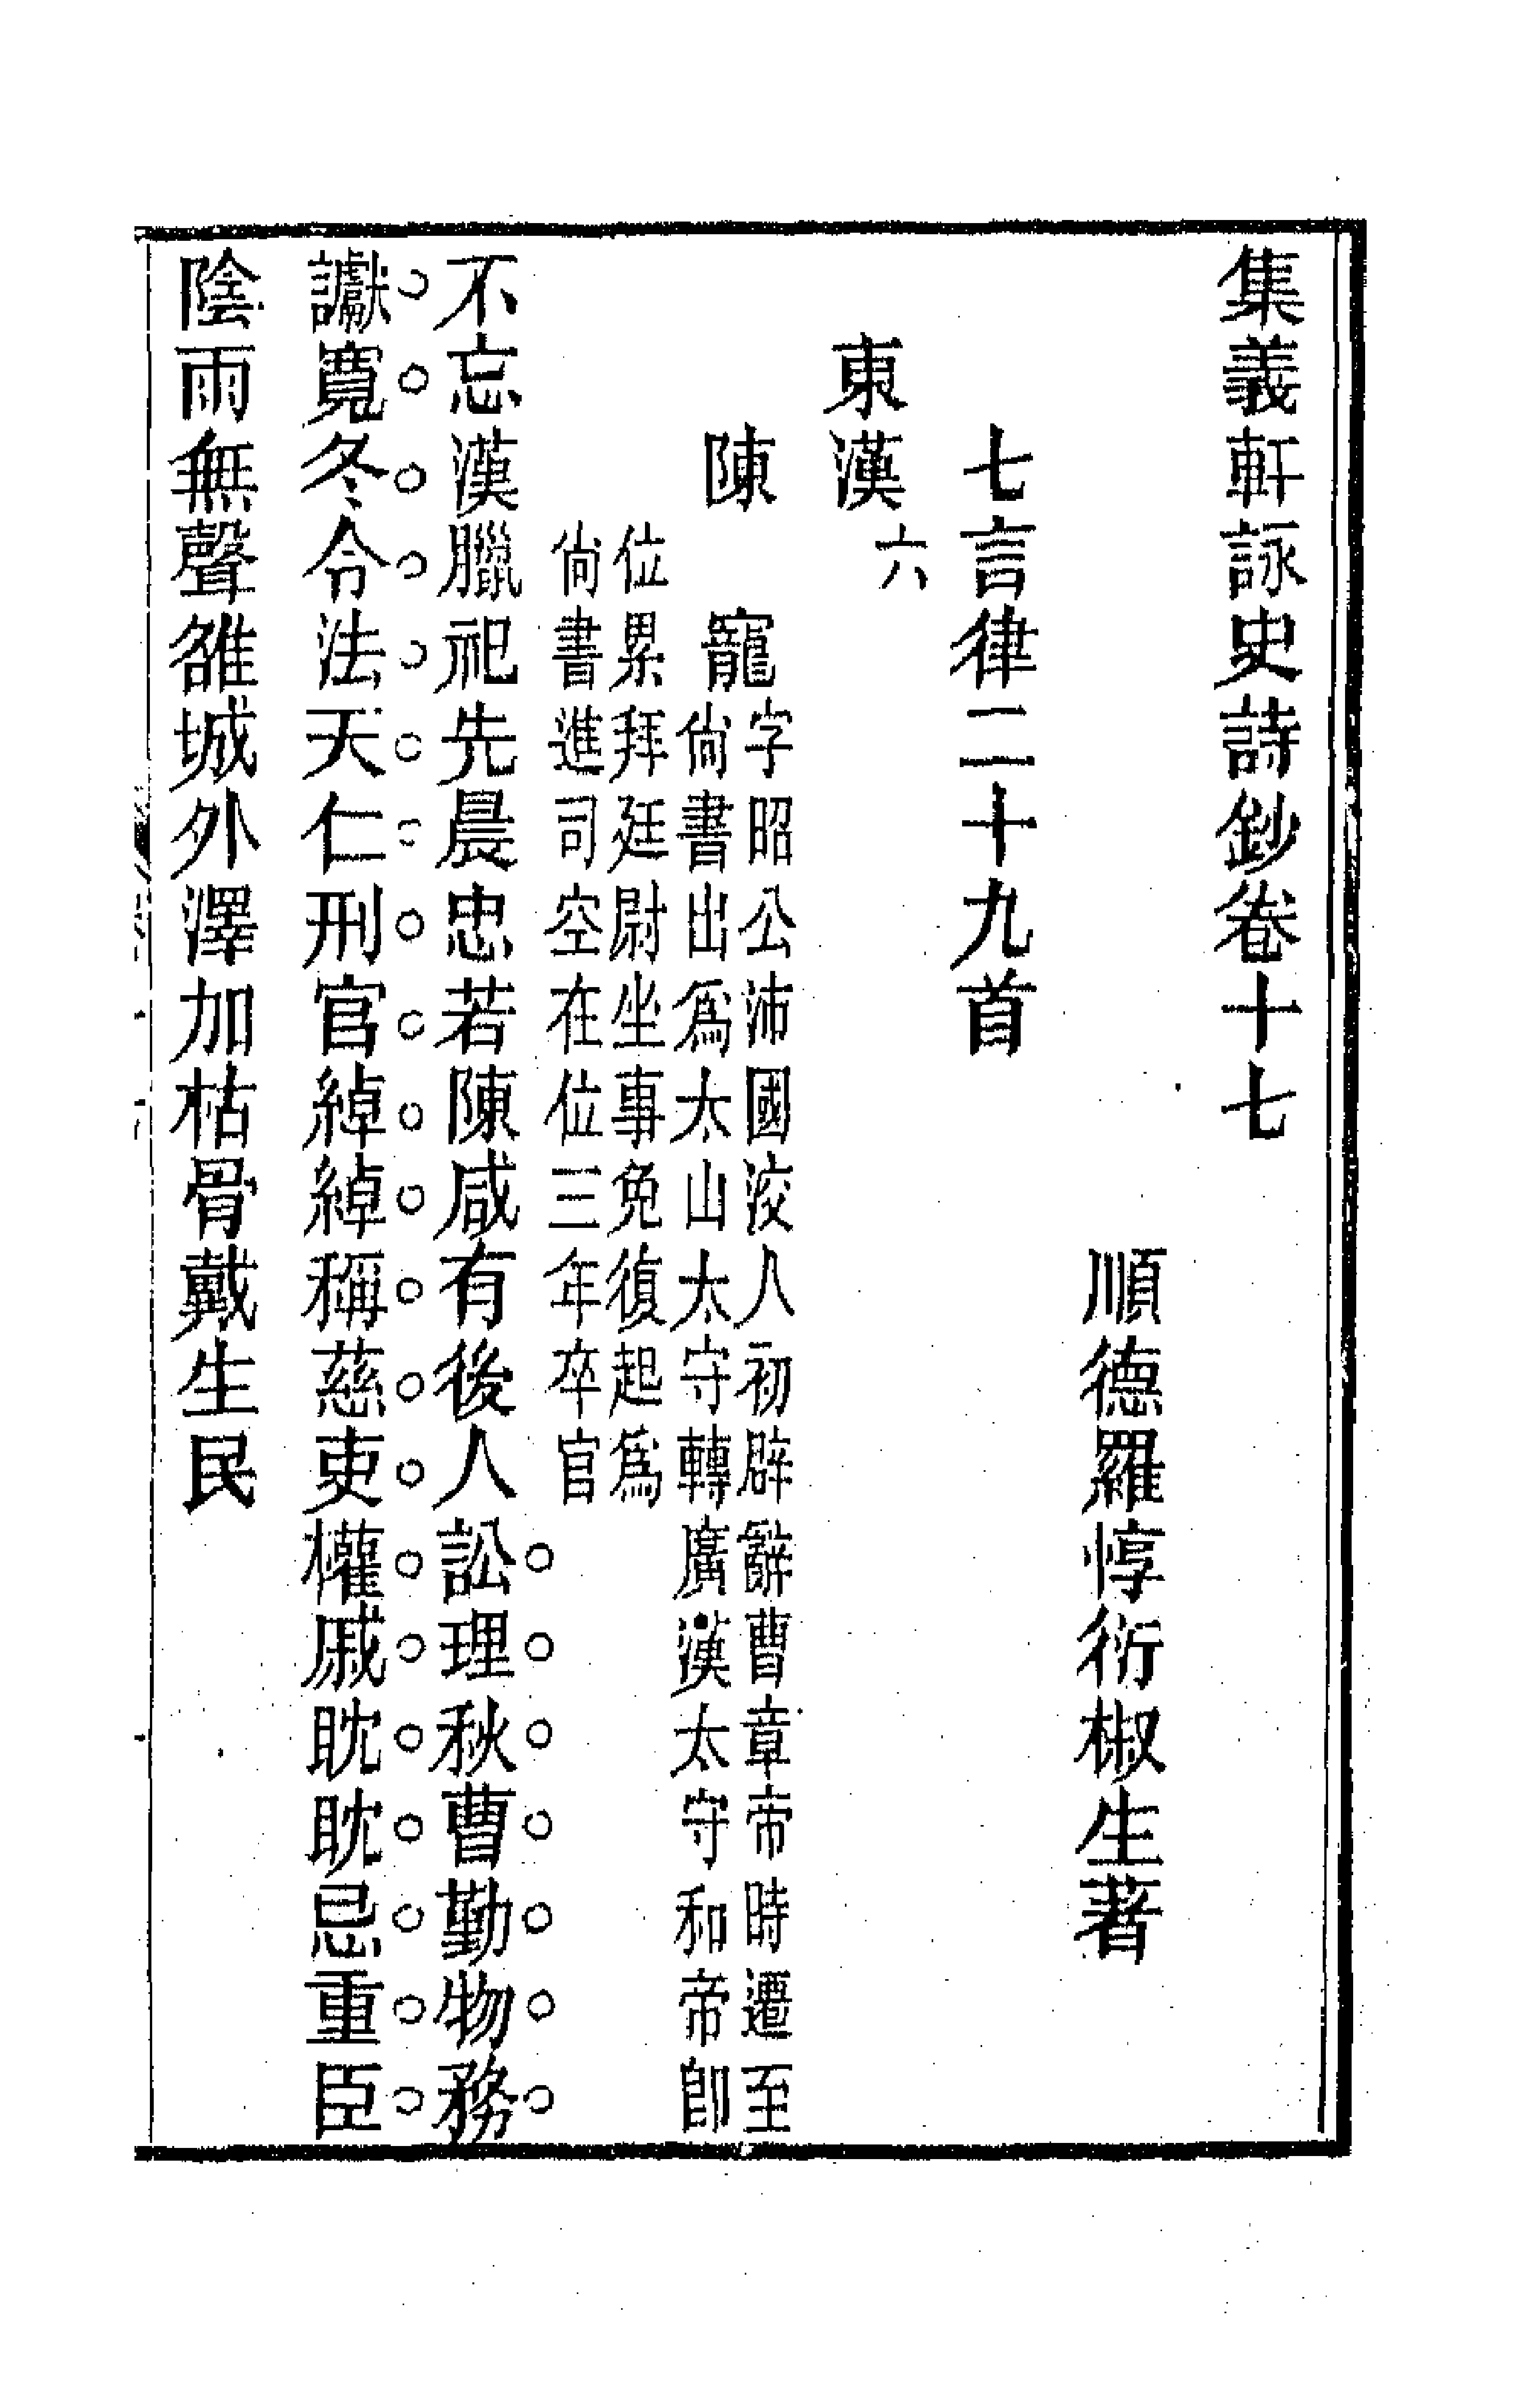 集義軒詠史詩鈔卷十七
順德羅惇衍椒生著
七言律二十九首
東漢六
陳寵字昭公沛國洨人初辟辭曹章帝時遷至
尙書出爲太山太守轉廣漢太守和帝卽
位累拜廷尉坐事免復起爲
尙書進司空在位三年卒官
不忘漢臘祀先晨忠若陳咸有後人訟理秋曹勤物務
讞寬冬令法天仁刑官綽綽稱慈吏權戚眈眈忌重臣
陰雨無聲雒城外澤加枯骨戴生民